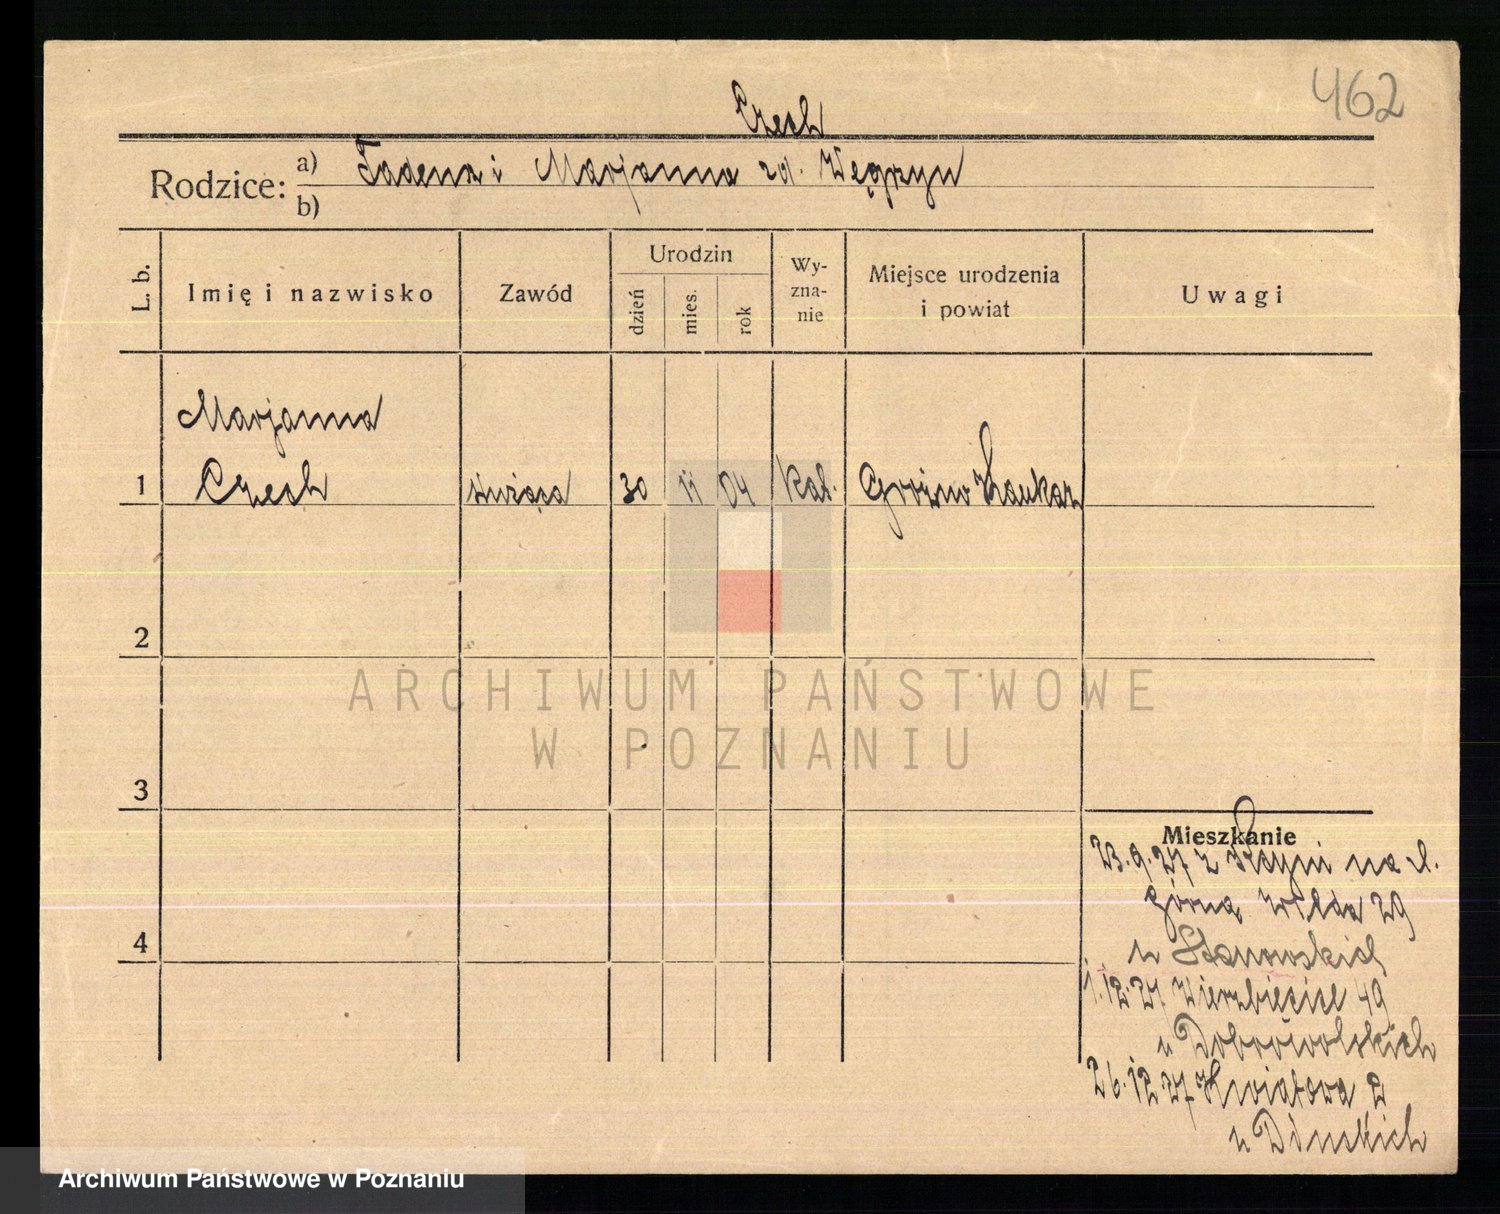 462
Czech
Rodzice: a) Tadeusz i Marjanna zd. Węgrzyn
b)
L. b. Imię i nazwisko Zawód Urodzin dzień mies. rok Wyznanie Miejsce urodzenia i powiat Uwagi
Marjanna
1 Czech służąca 30 11 04 Kat. Grożno Kaukaz
2
ARCHIWUM PAŃSTWOWE
W POZNANIU
3
Mieszkanie
23.9.27 z na d.
górna wilda 29
u
1.12.27 Wierzbięcice 49
u Dobrowolskich
26.12.27 Kwiatowa 2
u
4
Archiwum Państwowe w Poznaniu